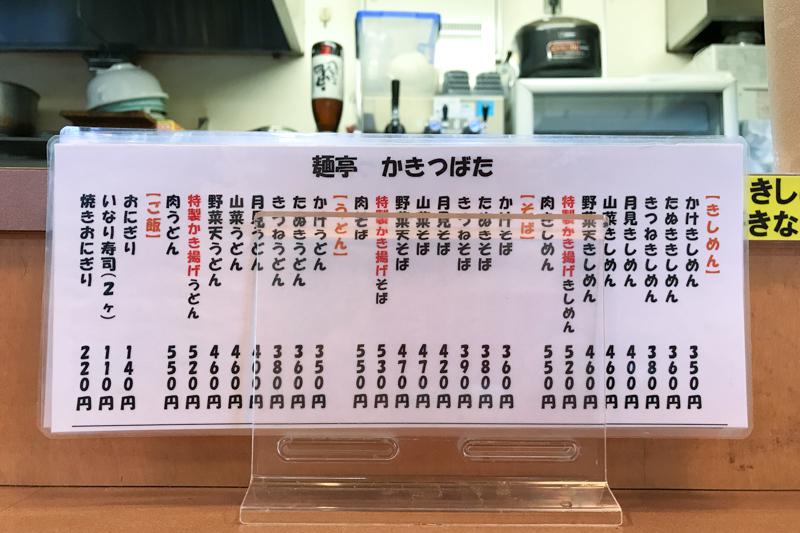 麺亭 かきつばた
【きしめん】
かけきしめん 350円
たぬききしめん 360円
きつねきしめん 380円
月見きしめん 400円
山菜きしめん 460円
野菜天きしめん 460円
特製かき揚げきしめん 520円
肉きしめん 550円
【そば】
かけそば 360円
たぬきそば 380円
きつねそば 390円
月見そば 420円
山菜そば 470円
野菜天そば 470円
特製かき揚げそば 530円
肉そば 550円
【うどん】
かけうどん 350円
たぬきうどん 360円
きつねうどん 380円
月見うどん 400円
山菜うどん 460円
野菜天うどん 460円
特製かき揚げうどん 520円
肉うどん 550円
【ご飯】
おにぎり 140円
いなり寿司(2ヶ) 110円
焼きおにぎり 220円
きし
きな